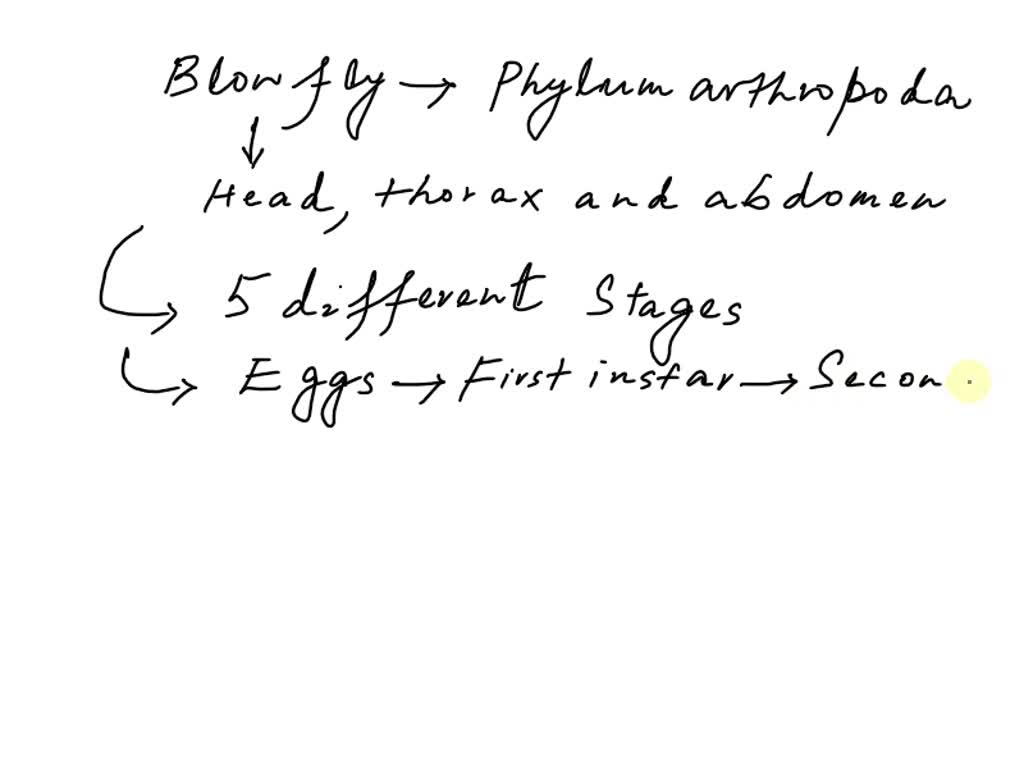 Blowfly → Phylum arthropoda
↓
Head, thorax and abdomen
→ 5 different Stages
→ Eggs → First instar → Secon